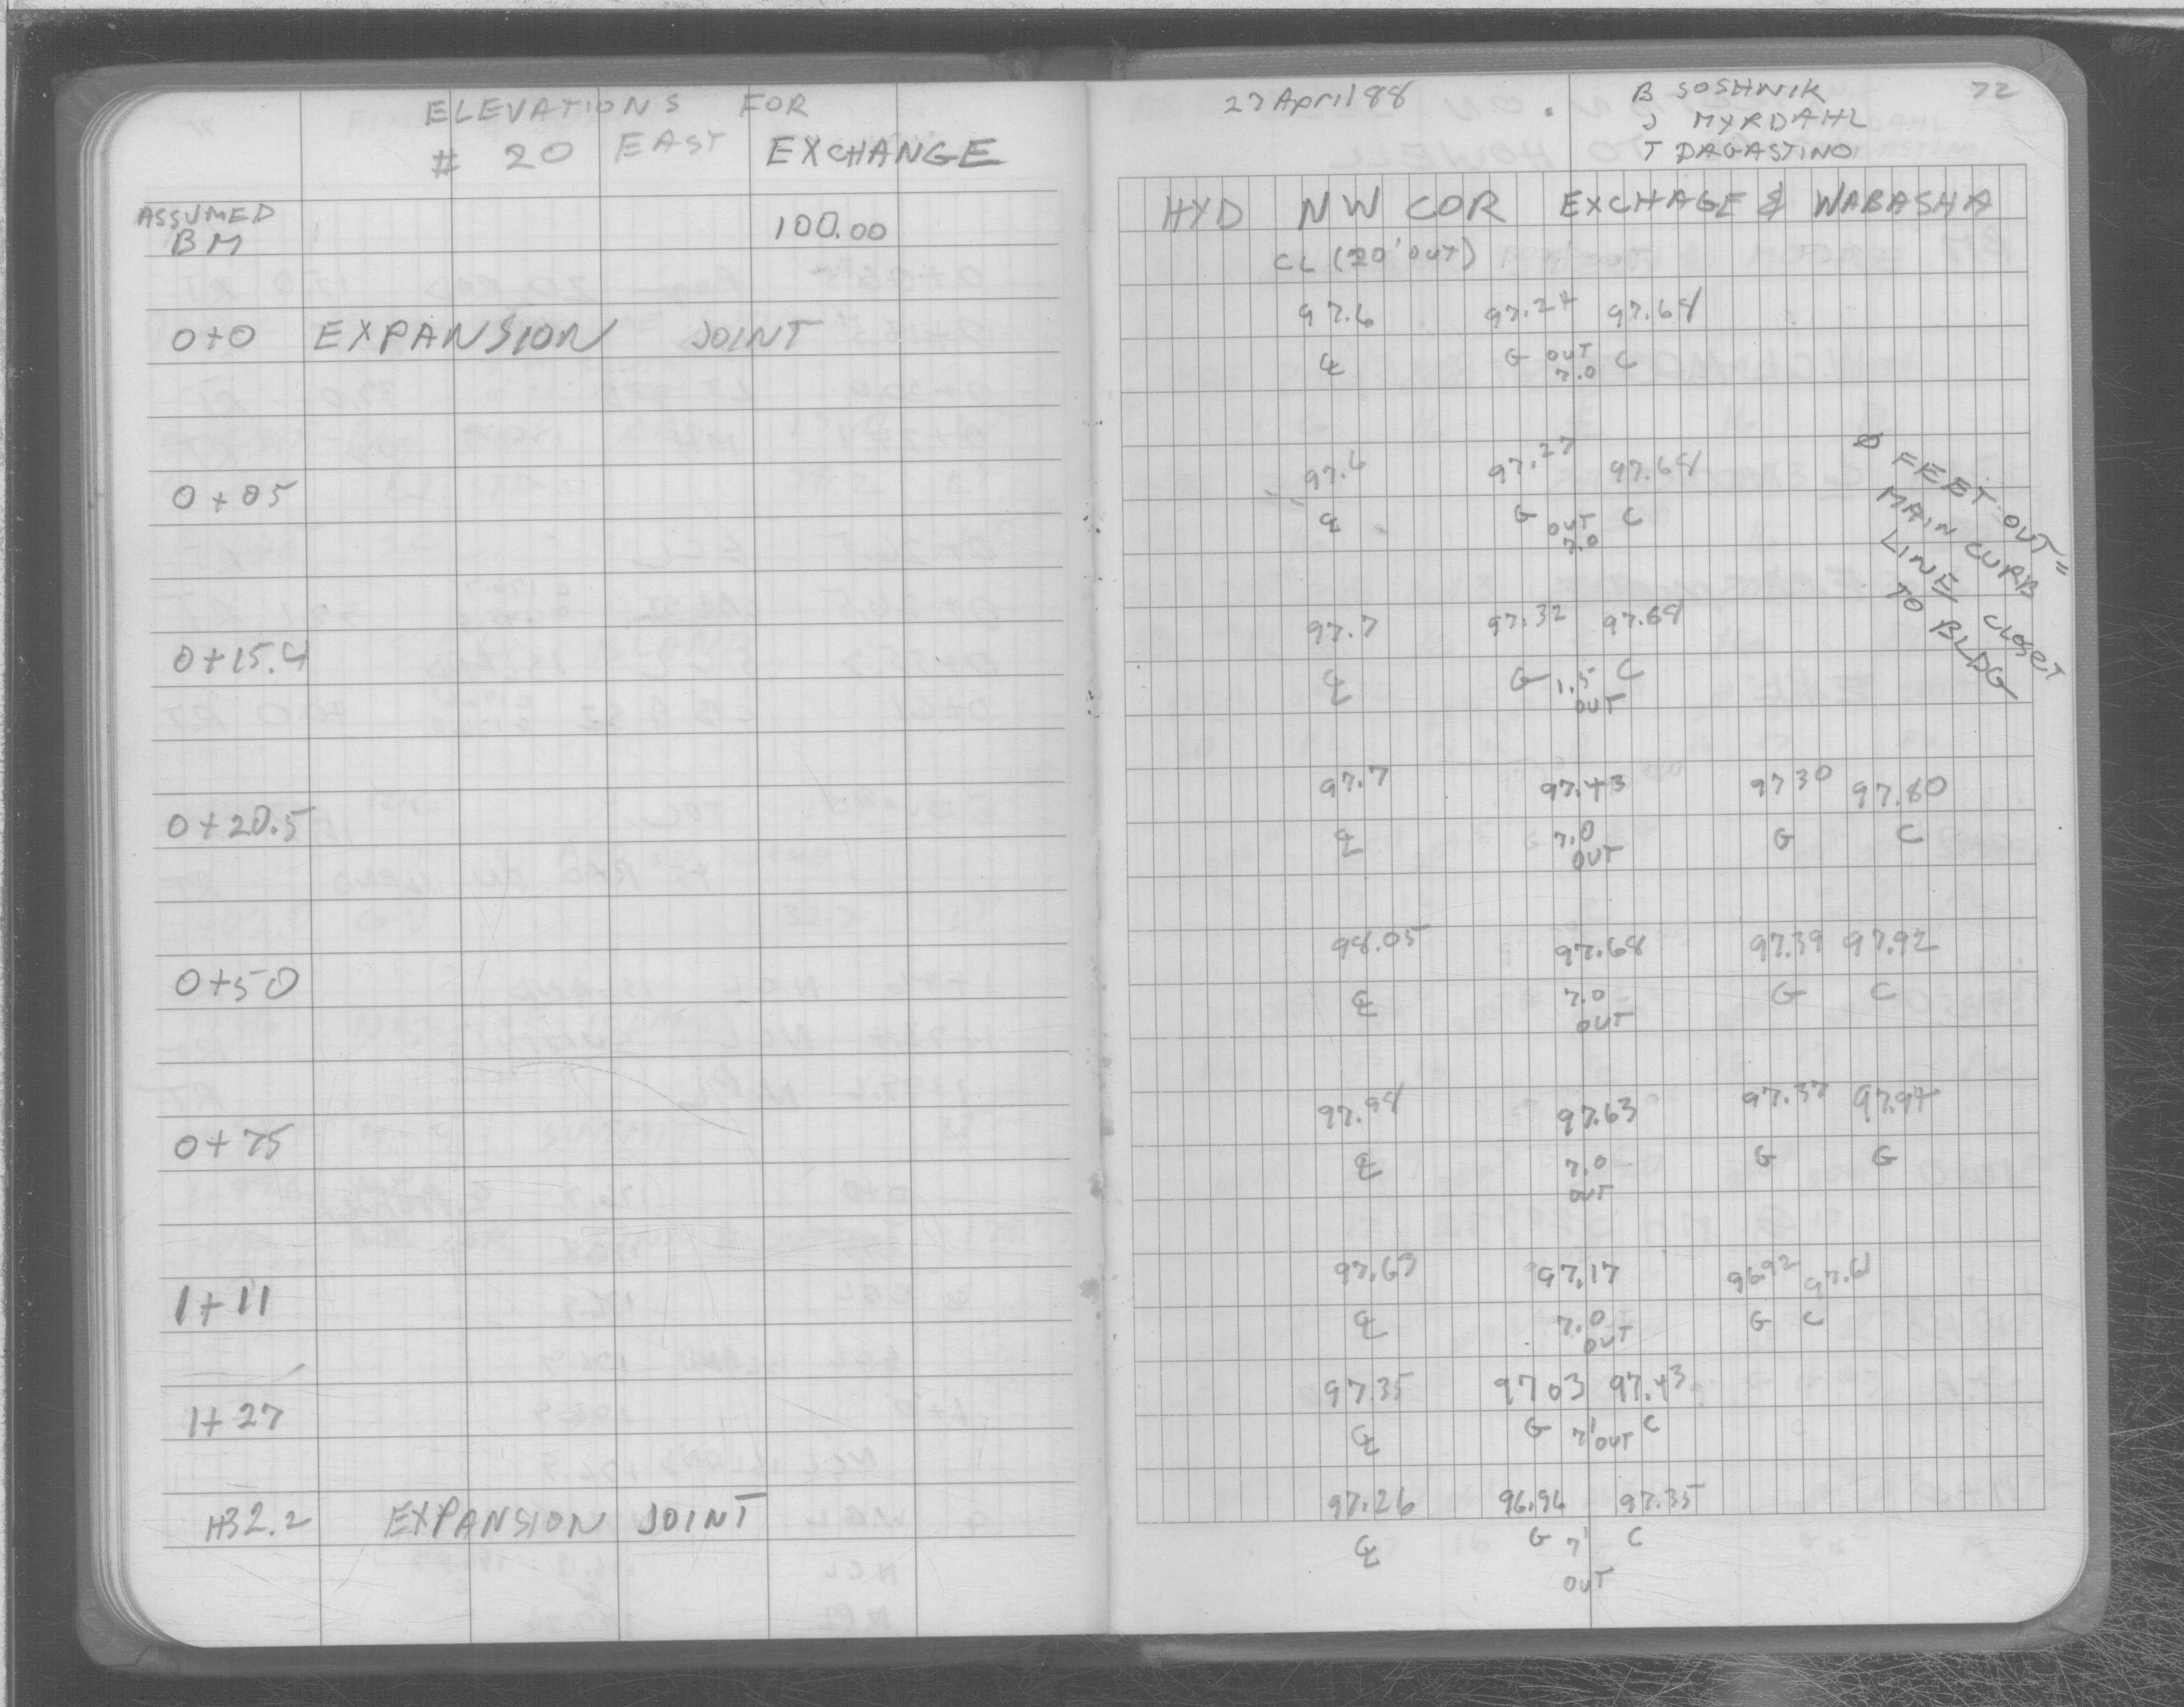 ELEVATIONS FOR
# 20 EAST EXCHANGE
ASSUMED
BM 100.00
0+0 EXPANSION JOINT
0+05
0+15.4
0+20.5
0+50
0+75
1+11
1+27
1+32.2 EXPANSION JOINT
27 April 88
B SOSHNIK
J MYRDAHL
T DAGASTINO
72
HYD NW COR EXCHAGE & WABASHA
CL (20' OUT)
97.6 97.24 97.64
℄ G OUT C
7.0
97.6 97.27 97.64
℄ G OUT C
7.0
Ø FEET OUT =
MAIN CURB
LINE CLOSET
TO BLDG
97.7 97.32 97.64
℄ G 1.5 C
OUT
97.7 97.43 97.30 97.80
℄ 7.0 G C
OUT
98.05 97.68 97.39 97.92
℄ 7.0 G C
OUT
97.94 97.63 97.37 97.94
℄ 7.0 G G
OUT
97.63 97.17 96.92 97.61
℄ 7.0 G C
OUT
97.35 97.03 97.43
℄ G 7' OUT C
97.26 96.96 97.35
℄ G 7' C
OUT